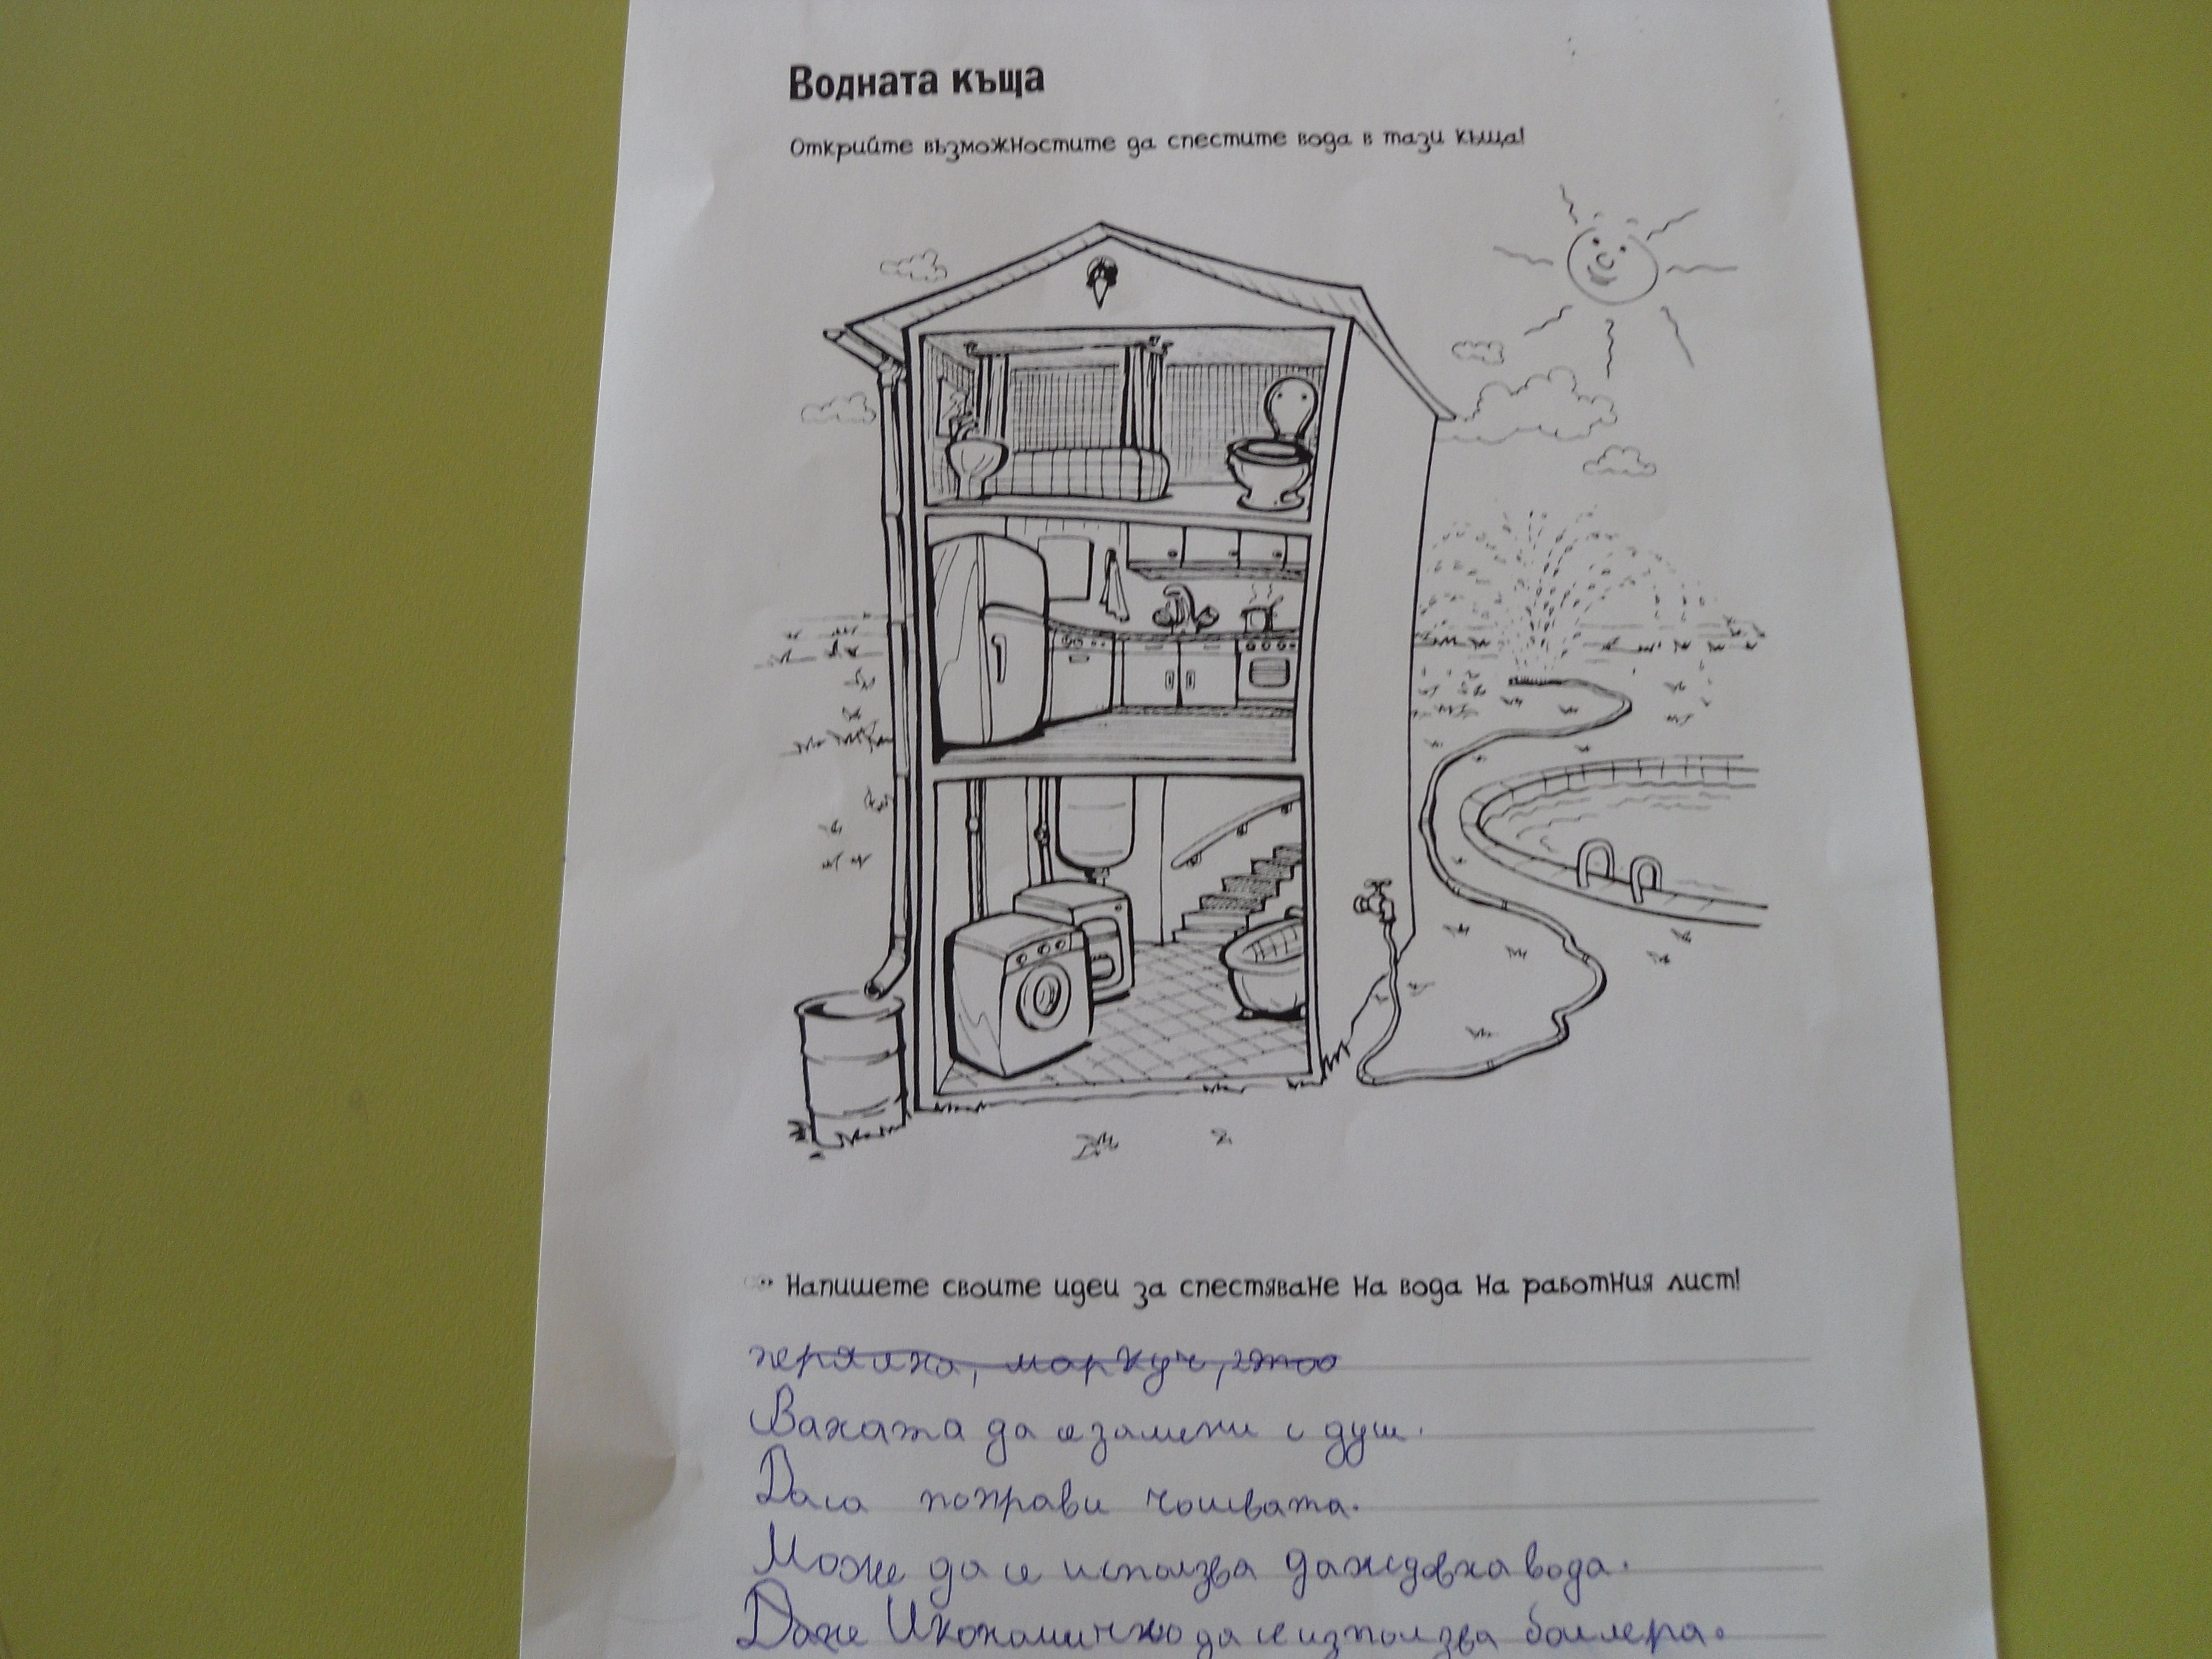 Водната къща
Открийте възможностите да спестите вода в тази къща!
Напишете своите идеи за спестяване на вода на работния лист!
пералня, маркуч,
Ваната да се замени с душ.
Да са поправи чошвата.
Може да се исползва даждовна вода.
Икономично да се използва боилера.